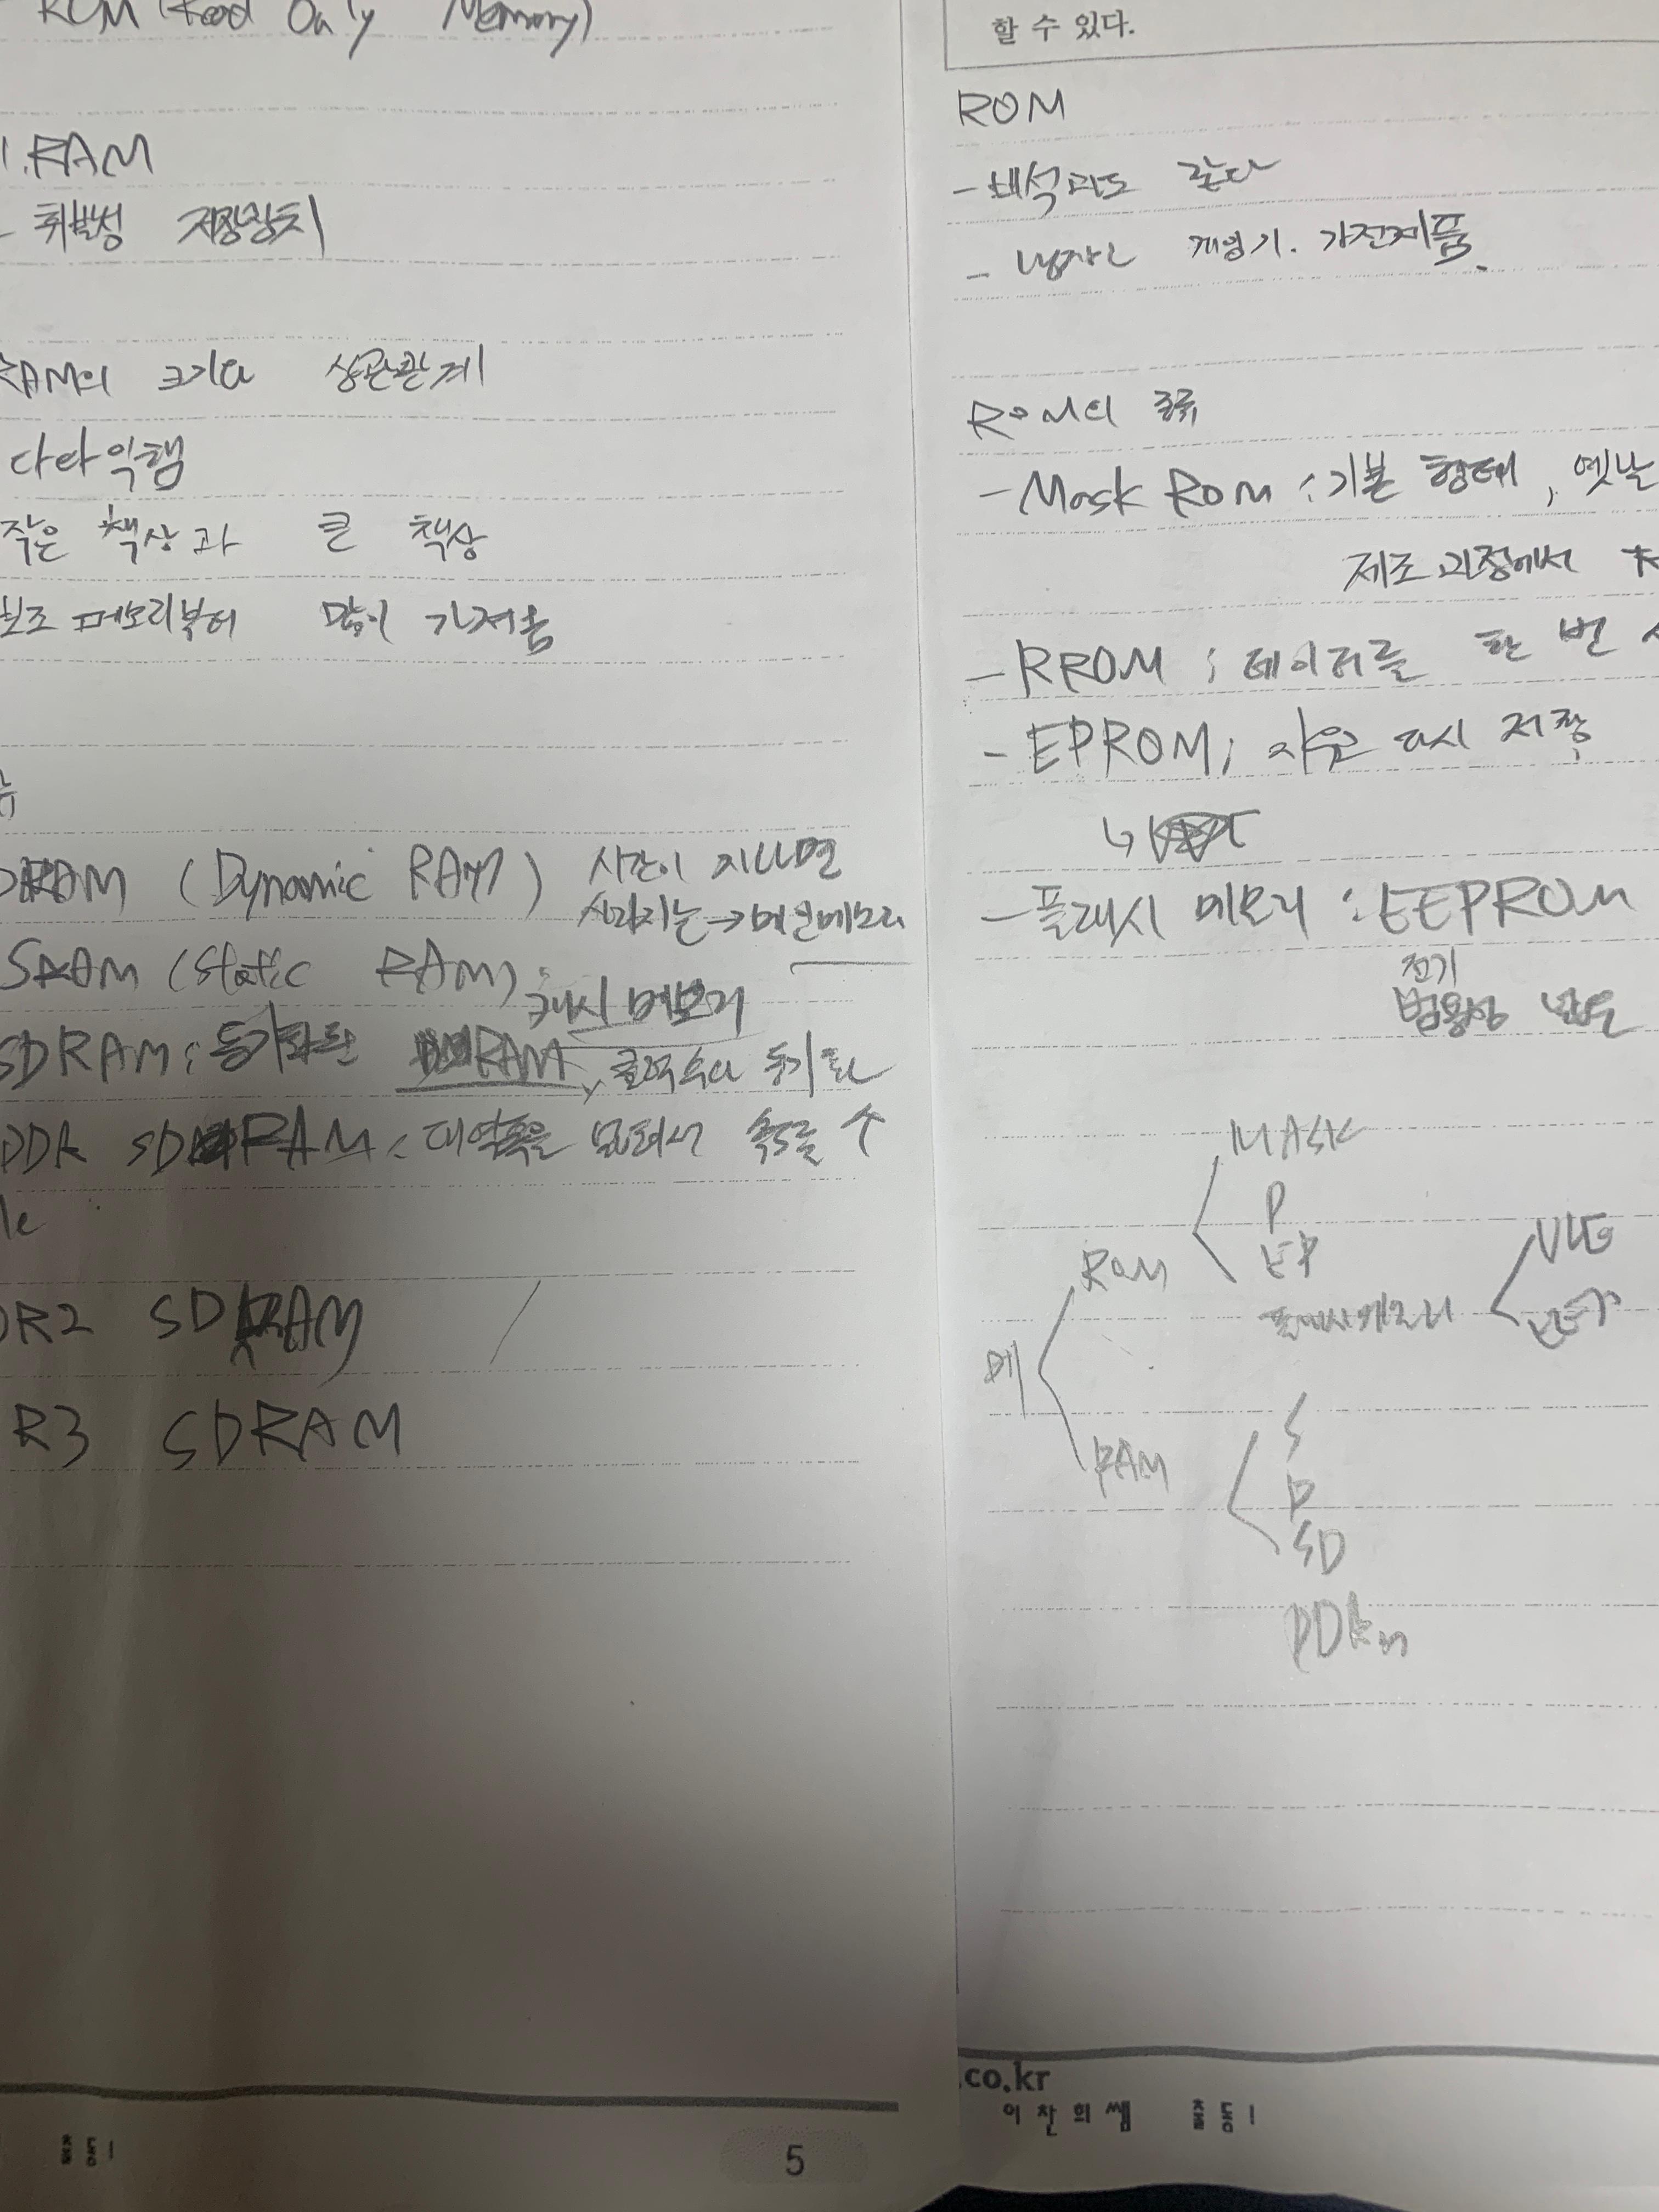 ROM (Read Only Memory)
1. RAM
- 휘발성 저장장치
RAM의 크기와 상관관계
다다익램
작은 책상과 큰 책상
보조 메모리부터 많이 가져옴
DRAM (Dynamic RAM) 시간이 지나면
사라지는 → 메인메모리
SRAM (Static RAM) : 캐시 메모리
SDRAM ; 동기화된 RAM, 클럭수와 동기화
DDR SDRAM : 대역폭을 넓혀서 속도를
DR2 SDRAM
R3 SDRAM
5
할 수 있다.
ROM
- 해석과도 같다
- 냉장고 게임기. 가전제품.
ROM의 종류
- Mask ROM : 기본 형태, 옛날
제조 과정에서
- RROM ; 데이터를 한 번
- EPROM ; 지우고 다시 저장
- 플래시 메모리 : EEPROM
전기
범용성
MASK
P
EP
ROM
플래시메모리
메
RAM
S
D
SD
DDR
.co.kr
이찬희쌤